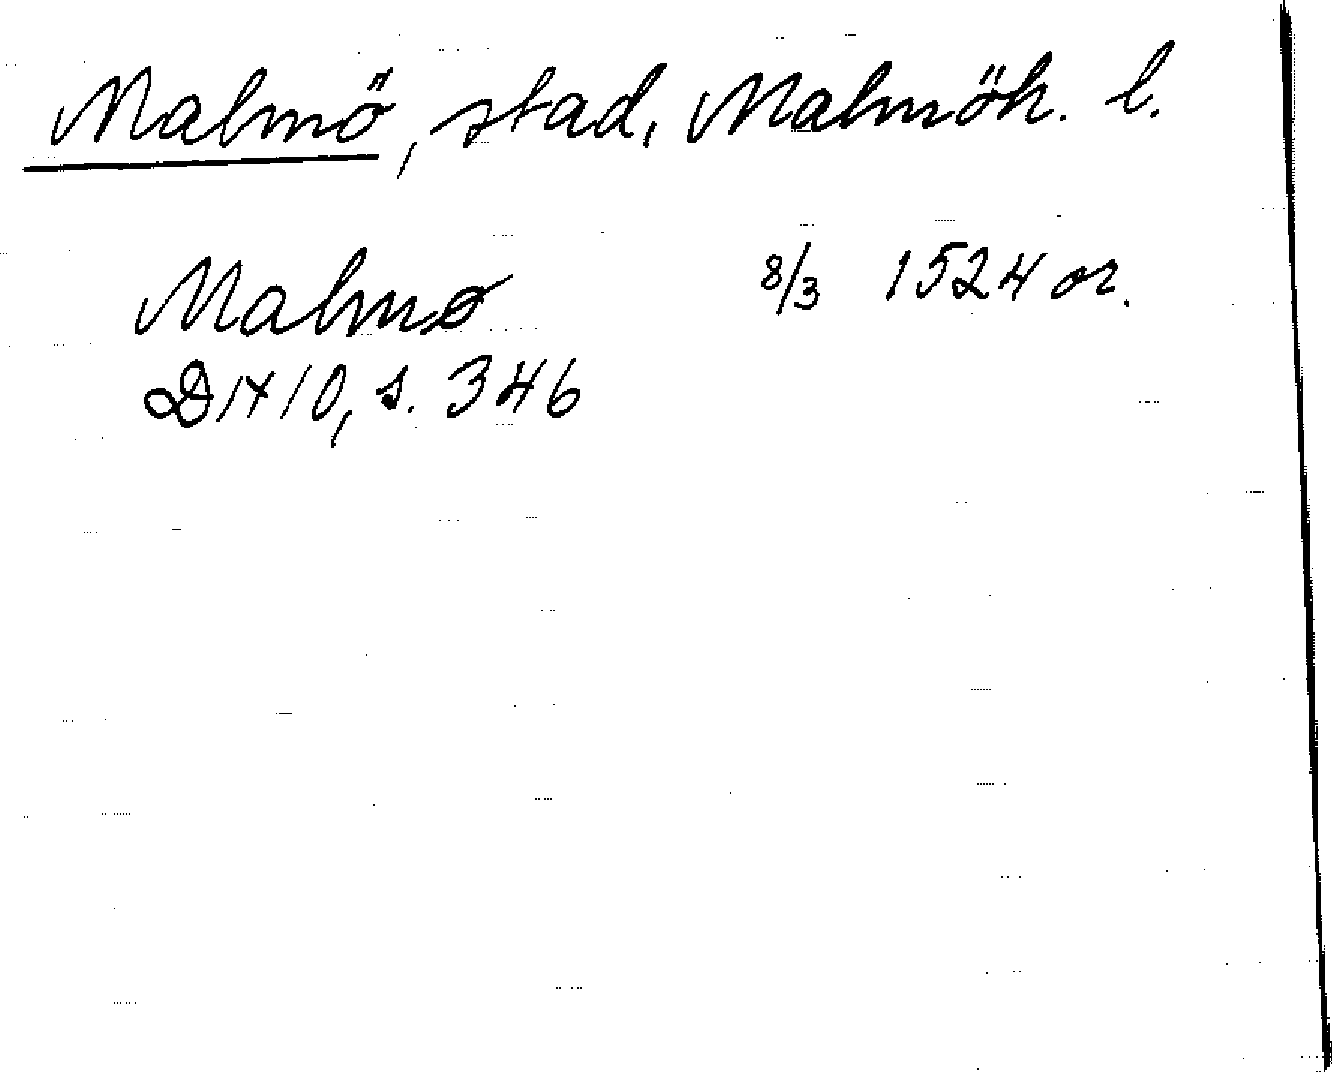 Malmö, stad, Malmöh. l.
Malmø 8/3 1524 or.
DN 10, s. 346